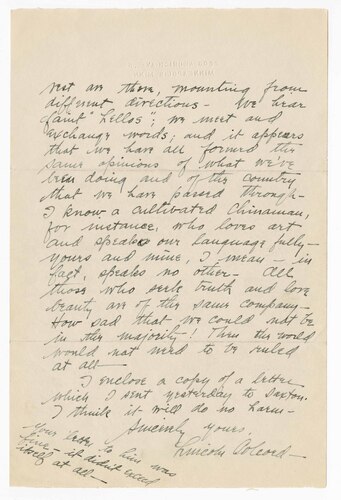 rest are there, mounting from
different directions – We hear
faint "hellos"; we meet and
exchange words; and it appears
that we have all formed the
same opinions of what we've
been doing and of the country
that we have passed through –
I know a cultivated Chinaman,
for instance, who loves art
and speaks our language fully –
yours and mine, I mean – in
fact, speaks no other – All
those who seek truth and love
beauty are of the same company –
How sad that we could not be
in the majority! Then the world
would not need to be ruled
at all –
I enclose a copy of a letter
which I sent yesterday to Sexton.
I think it will do no harm –
Sincerely yours,
Lincoln Colcord –
Your letter to him was
fine – it didn't excel
itself at all –